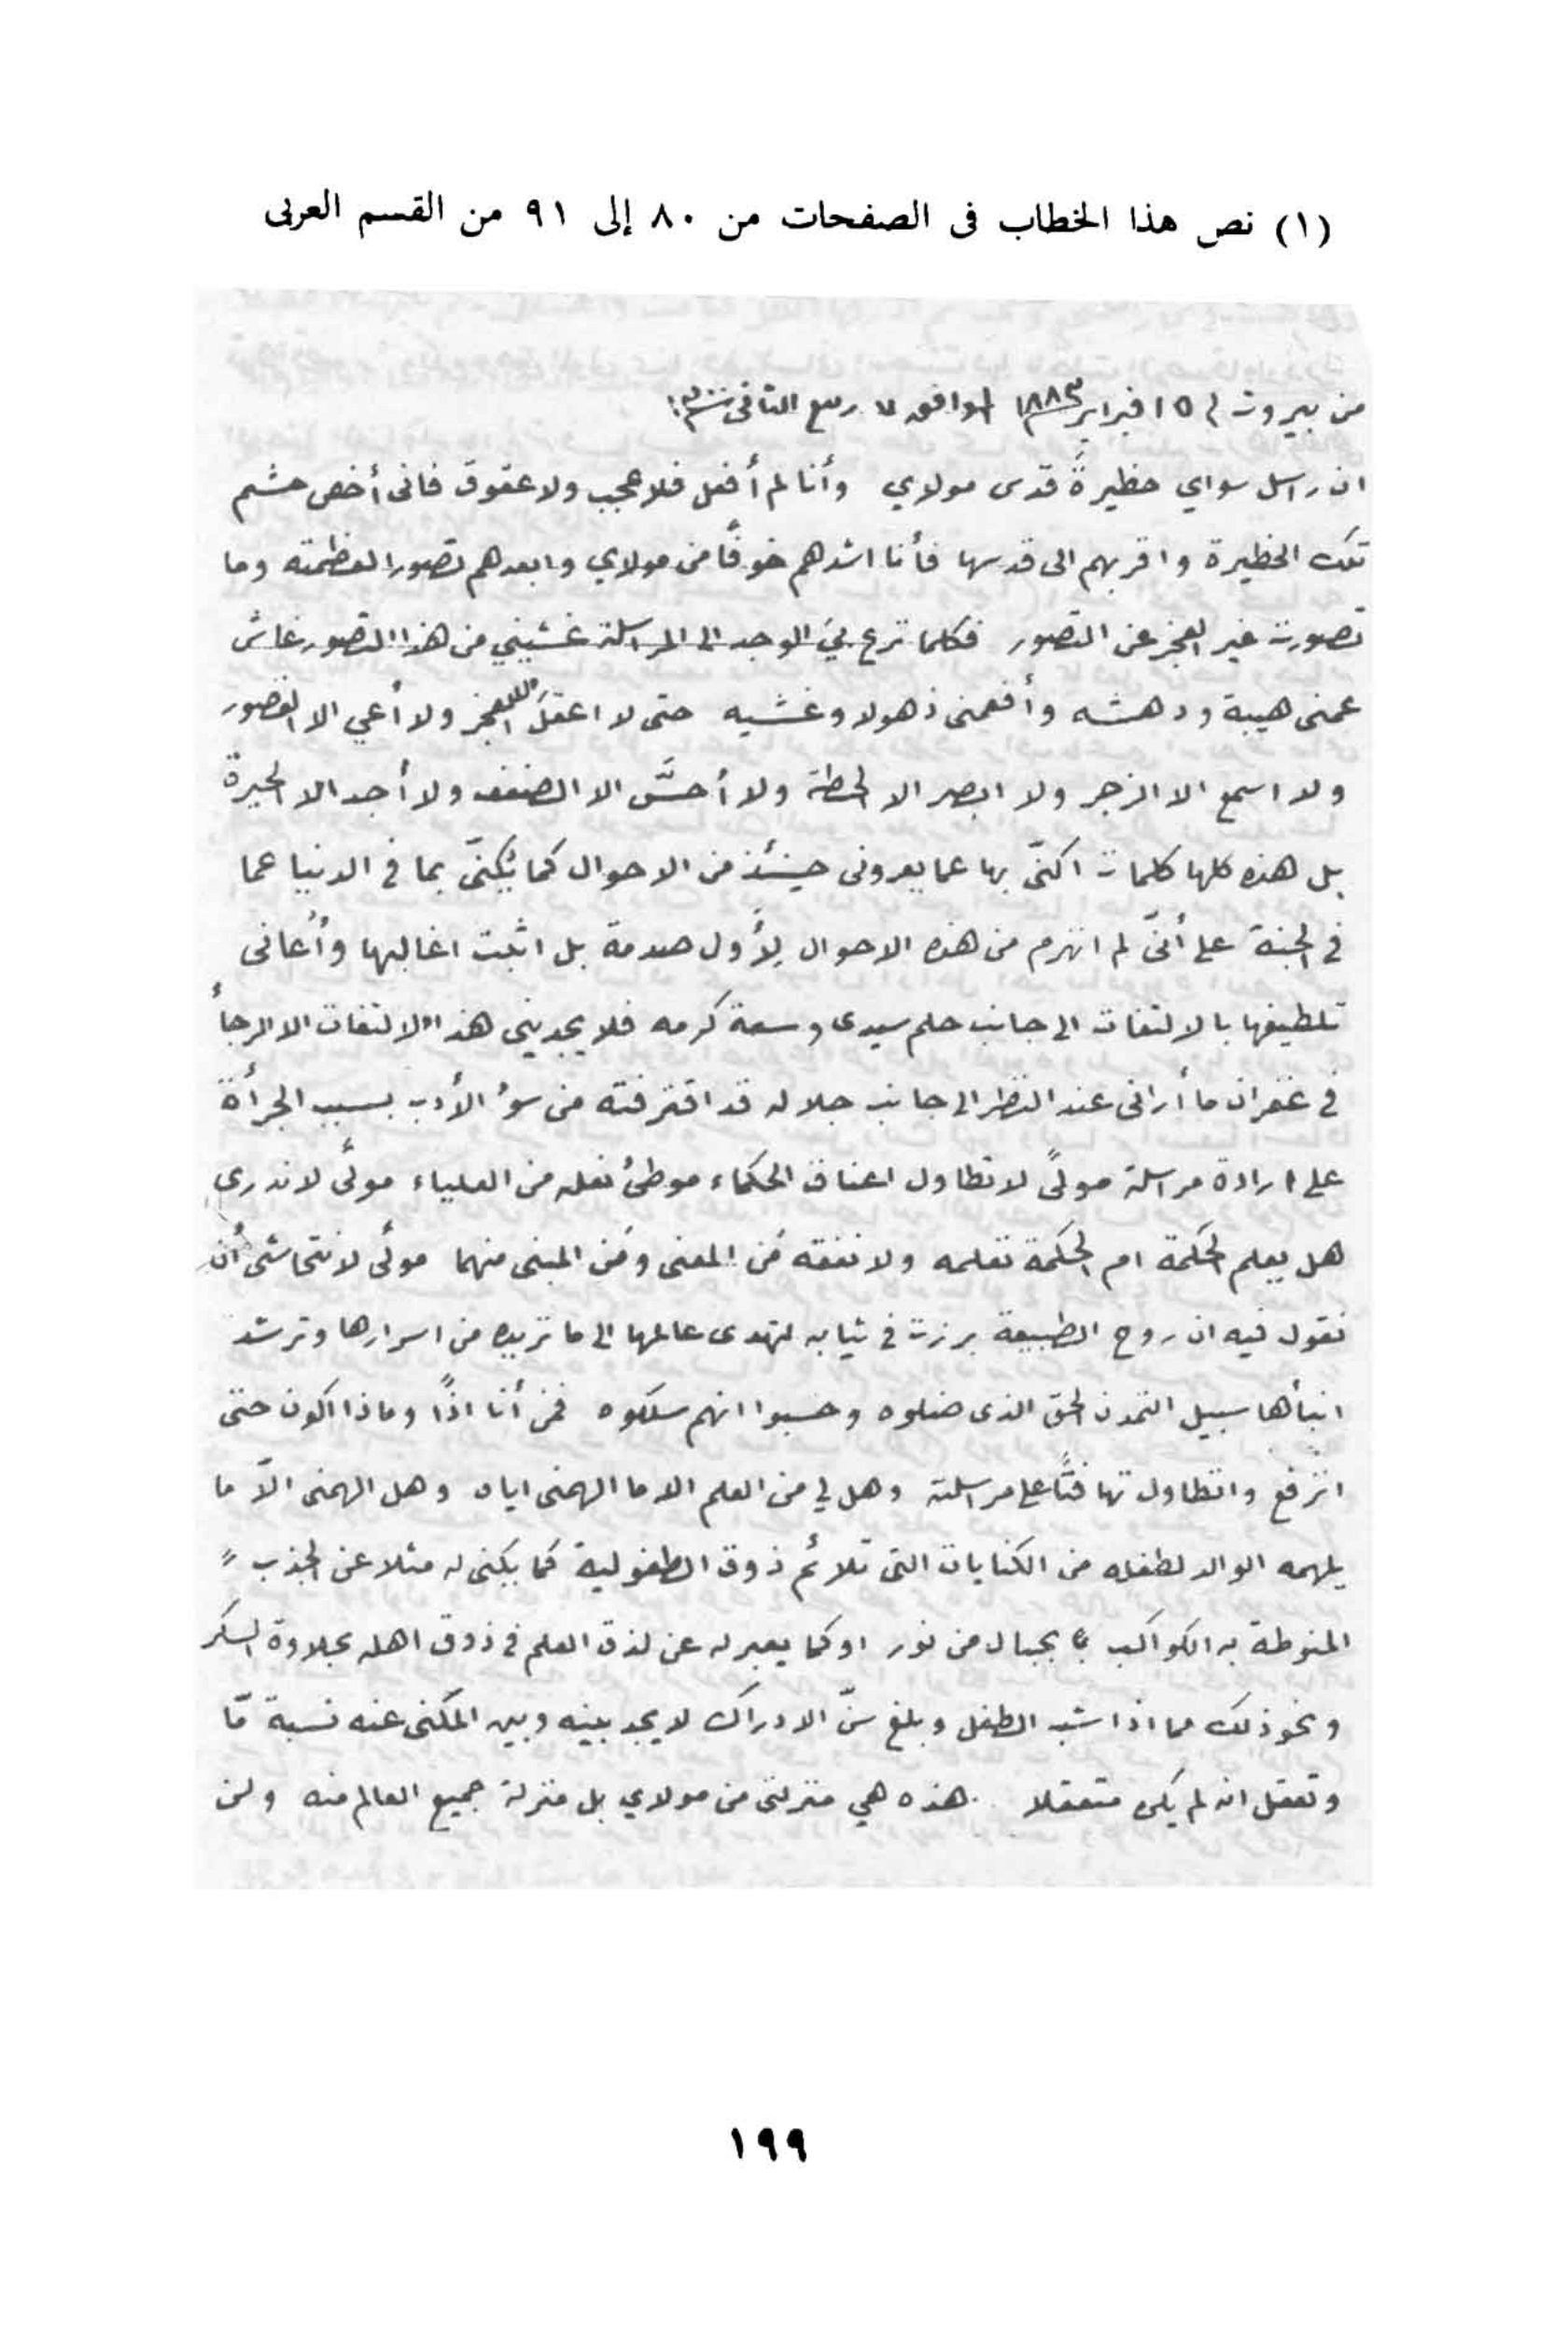 (١) نص هذا الخطاب فى الصفحات من ٨٠ إلى ٩١ من القسم العربى
من بيروت في ١٥ فبراير ١٨٨٣ الموافق ٧ ربيع الثانى سنة ١٣٠٠
ان راسل سواي حظيرةَ قدس مولاي وأنا لم أفعل فلا عجب ولا عقوق فانى أخص حشم
تلك الحظيرة واقربهم الى قدسها فأنا اشدهم خوفًا من مولاي وابعدهم تصورا لعظمته وما
تصورت غير العجز عن التصور فكلما نزع بيَ الوجد الى المراسلة غشيني من هذا التصور غاش
عمنى هيبة ودهشه وأفعمنى ذهولا وغشيه حتى لا اعقل الا العجز ولا أعي الا القصور
ولا اسمع الا الزجر ولا ابصر الا لحظة ولا أحسَّ الا الضعف ولا أجد الا الحيرة
بل هذه كلها كلمات اكنّى بها عما يعرونى حينئذ من الاحوال كما يُكنّى بما في الدنيا عما
في الجنة على أنّى لم انهزم من هذه الاحوال لِأَول صدمة بل اثبت اغالبها وأُعانى
تلطيفها بالالتفات الى جانب حلم سيدى وسعة كرمه فلا يجديني هذا الالتفات الا الرجاءُ
في غفران ما أرانى عند النظر الى جانب جلاله قد اقترفته من سؤ الأدب بسبب الجرأة
على ارادة مراسلة مولًى لا تطاول اعناق الحكماء موطئ نعله من العلياء مولًى لا ندرى
هل يعلم الحكمة ام الحكمة تعلمه ولا نفقه مَن المعنى ومَن المبنى منهما مولًى لا نتحاشى أن
نقول فيه ان روح الطبيعة برزت في ثيابه لتهدى عالمها الى ما تريده من اسرارها وترشد
ابنأها سبيل التمدن الحق الذى ضلوه وحسبوا انهم سلكوه فمن أنا اذًا وماذا اكون حتى
اترفع واتطاول تهافتًا على مراسلته وهل لي من العلم الا ما الهمنى اياه وهل الهمنى الّا ما
يلهمه الوالد لطفله من الكنايات التى تلائم ذوق الطفولية كما يكنى له مثلا عن الجذب
المنوطة به الكواكب بحبال من نور او كما يعبر له عن لذة العلم في ذوق اهله بحلاوة السكر
ونحو ذلك مما اذا شب الطفل وبلغ سنّ الادراك لا يجد بينه وبين المكنى عنه نسبة مّا
وتعقل انه لم يكن متعقلا هذه هي منزلتى من مولاي بل منزلة جميع العالم منه ولئن
١٩٩